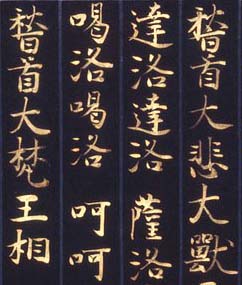 稽首大悲大獸王
達洛達洛 薩洛
喝洛喝洛 呵呵
稽首大梵王相